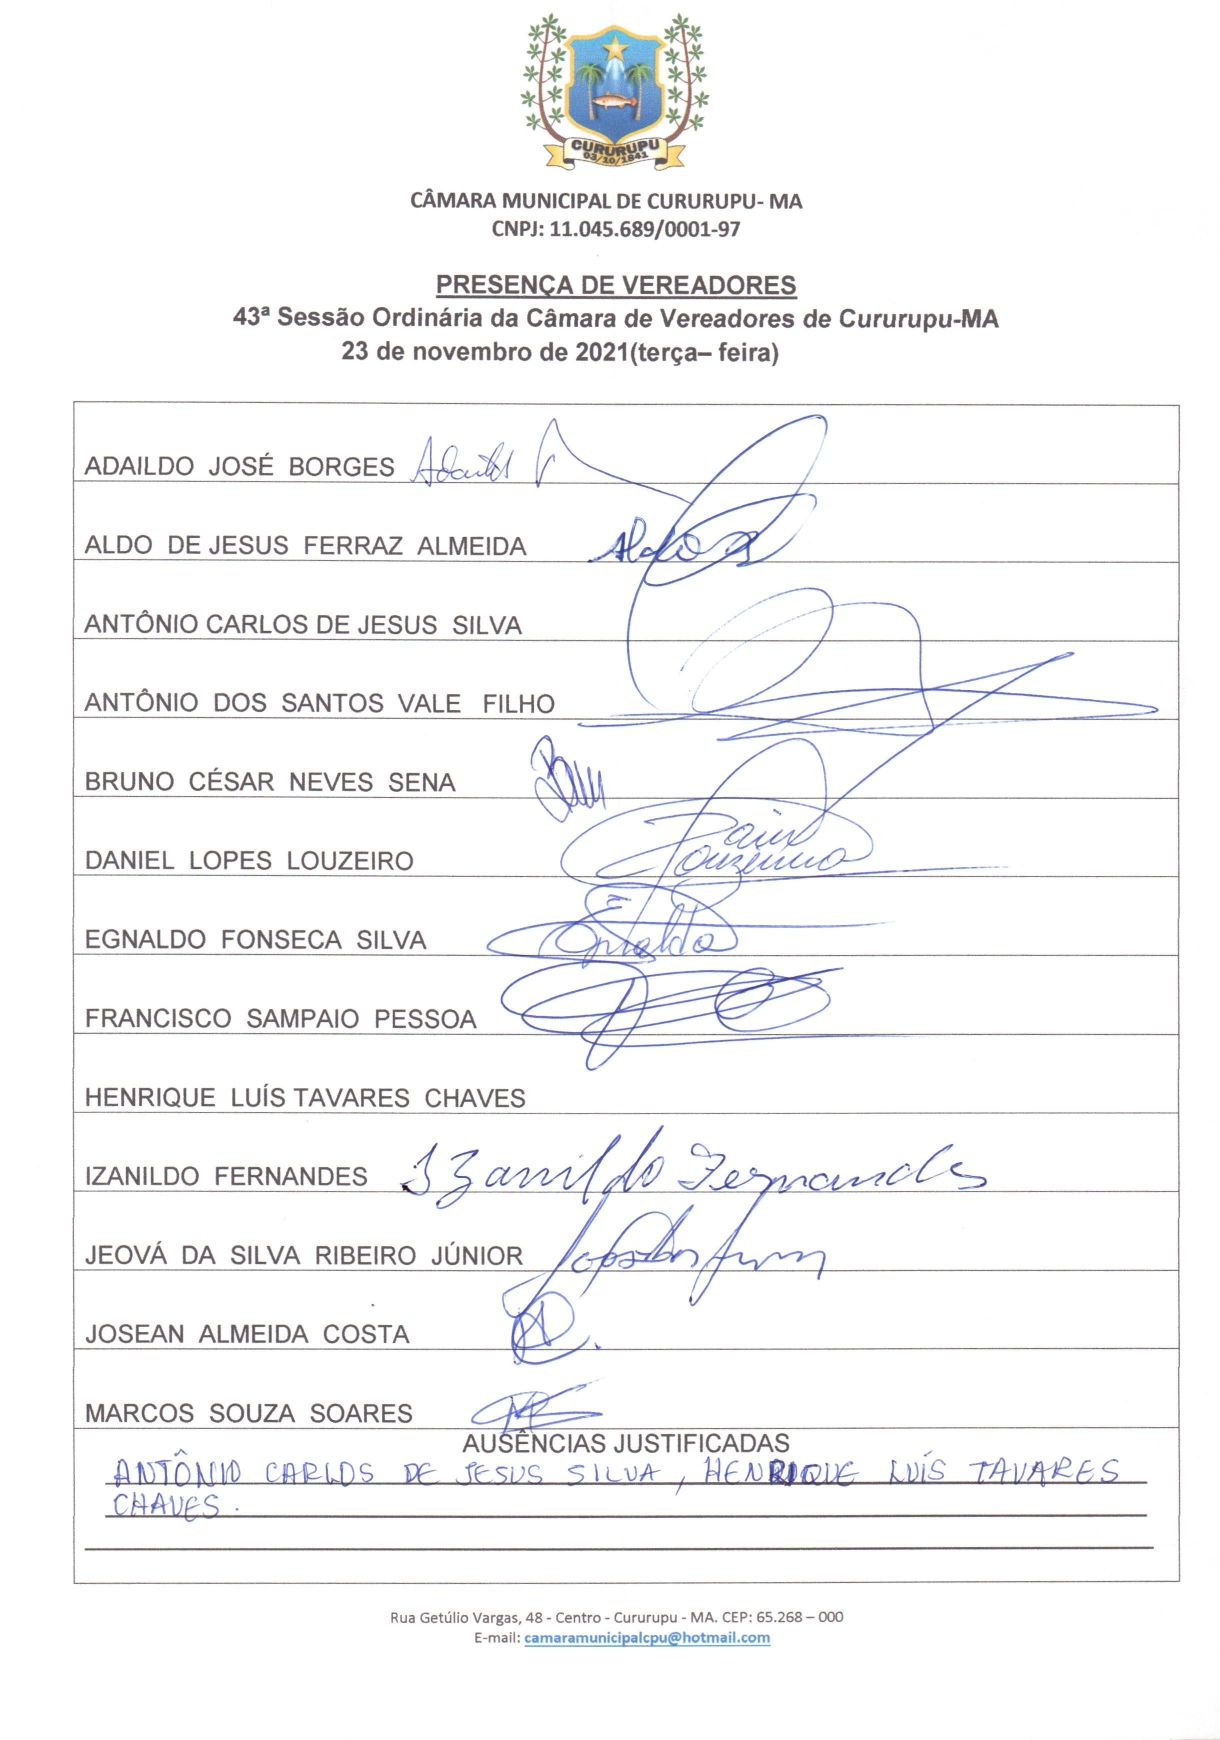 CURURUPU
03/10/1841
CÂMARA MUNICIPAL DE CURURUPU- MA
CNPJ: 11.045.689/0001-97
PRESENÇA DE VEREADORES
43ª Sessão Ordinária da Câmara de Vereadores de Cururupu-MA
23 de novembro de 2021(terça– feira)
ADAILDO JOSÉ BORGES
ALDO DE JESUS FERRAZ ALMEIDA Aldo
ANTÔNIO CARLOS DE JESUS SILVA
ANTÔNIO DOS SANTOS VALE FILHO
BRUNO CÉSAR NEVES SENA
DANIEL LOPES LOUZEIRO
EGNALDO FONSECA SILVA
FRANCISCO SAMPAIO PESSOA
HENRIQUE LUÍS TAVARES CHAVES
IZANILDO FERNANDES Izanildo Fernandes
JEOVÁ DA SILVA RIBEIRO JÚNIOR
JOSEAN ALMEIDA COSTA
MARCOS SOUZA SOARES
AUSÊNCIAS JUSTIFICADAS
ANTÔNIO CARLOS DE JESUS SILVA, HENRIQUE LUÍS TAVARES
CHAVES.
Rua Getúlio Vargas, 48 - Centro - Cururupu - MA. CEP: 65.268 – 000
E-mail: camaramunicipalcpu@hotmail.com